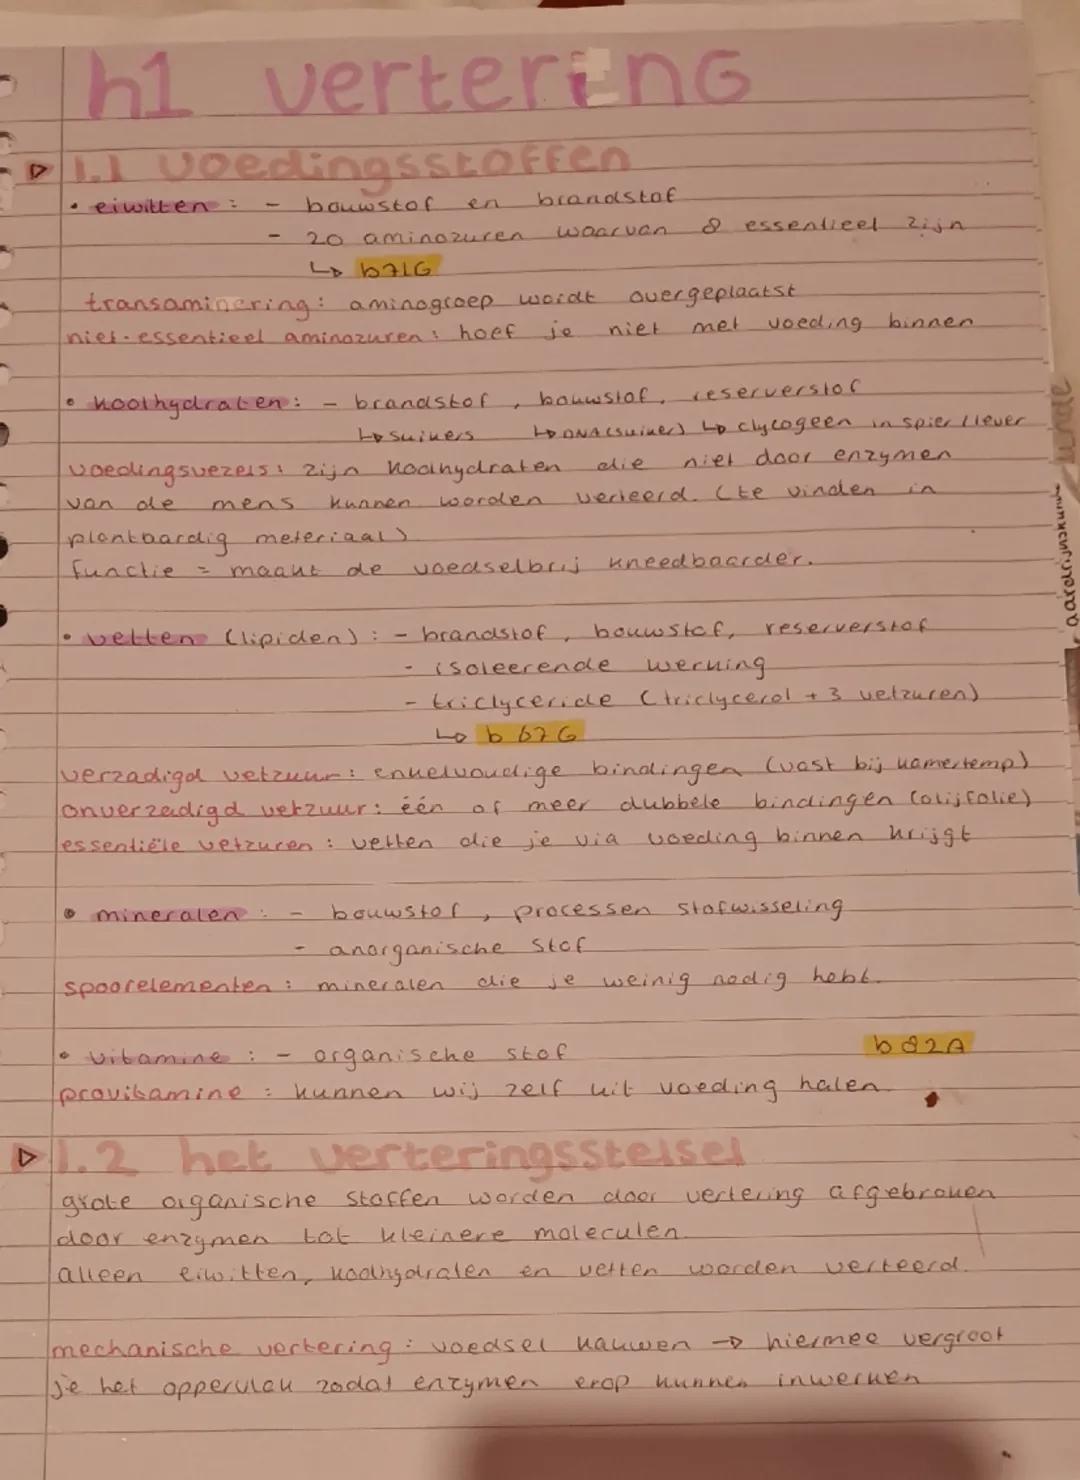 h1 vertering
1.1 voedingsstoffen
• eiwitten : - bouwstof en brandstof
- 20 aminozuren waarvan 8 essentieel zijn
↳ b71G
transaminering : aminogroep wordt overgeplaatst
niet-essentieel aminozuren : hoef je niet met voeding binnen
• koolhydraten : - brandstof, bouwstof, reserverstof
↳ suikers ↳ DNA (suiker) ↳ clycogeen in spier / lever
voedingsvezels : zijn koolhydraten die niet door enzymen
van de mens kunnen worden verteerd. (te vinden in
plantaardig meteriaal)
functie = maakt de voedselbrij kneedbaarder.
• vetten (lipiden) : - brandstof, bouwstof, reserverstof
- isoleerende werking
- triclyceride (triclycerol + 3 vetzuren)
↳ b 67G
verzadigd vetzuur : enkelvoudige bindingen (vast bij kamertemp)
onverzadigd vetzuur : één of meer dubbele bindingen (olijfolie)
essentiële vetzuren : vetten die je via voeding binnen krijgt
• mineralen : - bouwstof, processen stofwisseling
- anorganische stof
spoorelementen : mineralen die je weinig nodig hebt.
• vitamine : - organische stof b82A
provitamine : kunnen wij zelf uit voeding halen.
1.2 het verteringsstelsel
grote organische stoffen worden door vertering afgebroken
door enzymen tot kleinere moleculen.
alleen eiwitten, koolhydraten en vetten worden verteerd.
mechanische vertering : voedsel kauwen → hiermee vergroot
je het oppervlak zodat enzymen erop kunnen inwerken
aardrijkskunde